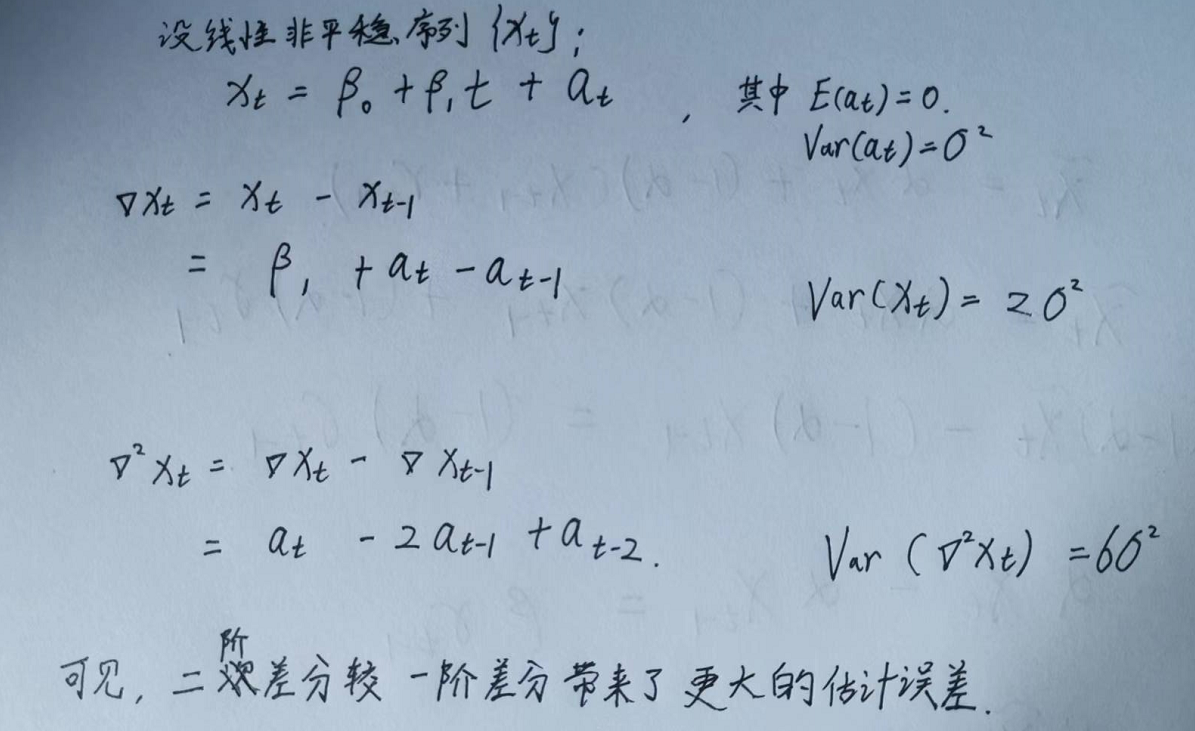 设线性非平稳序列{xt};
xt = β0 + β1t + at , 其中 E(at)=0.
Var(at)=σ²
∇xt = xt - xt-1
= β1 + at - at-1
Var(xt) = 2σ²
∇²xt = ∇xt - ∇xt-1
= at - 2at-1 + at-2.
Var(∇²xt) = 6σ²
可见, 二阶差分较一阶差分带来了更大的估计误差.